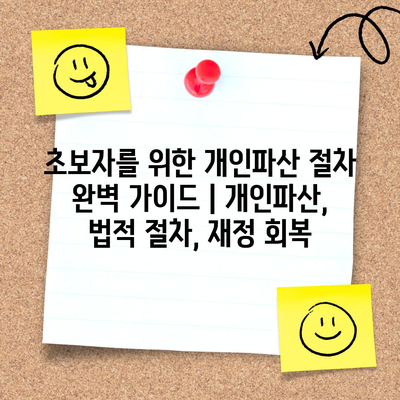 초보자를 위한 개인파산 절차
완벽 가이드 | 개인파산,
법적 절차, 재정 회복